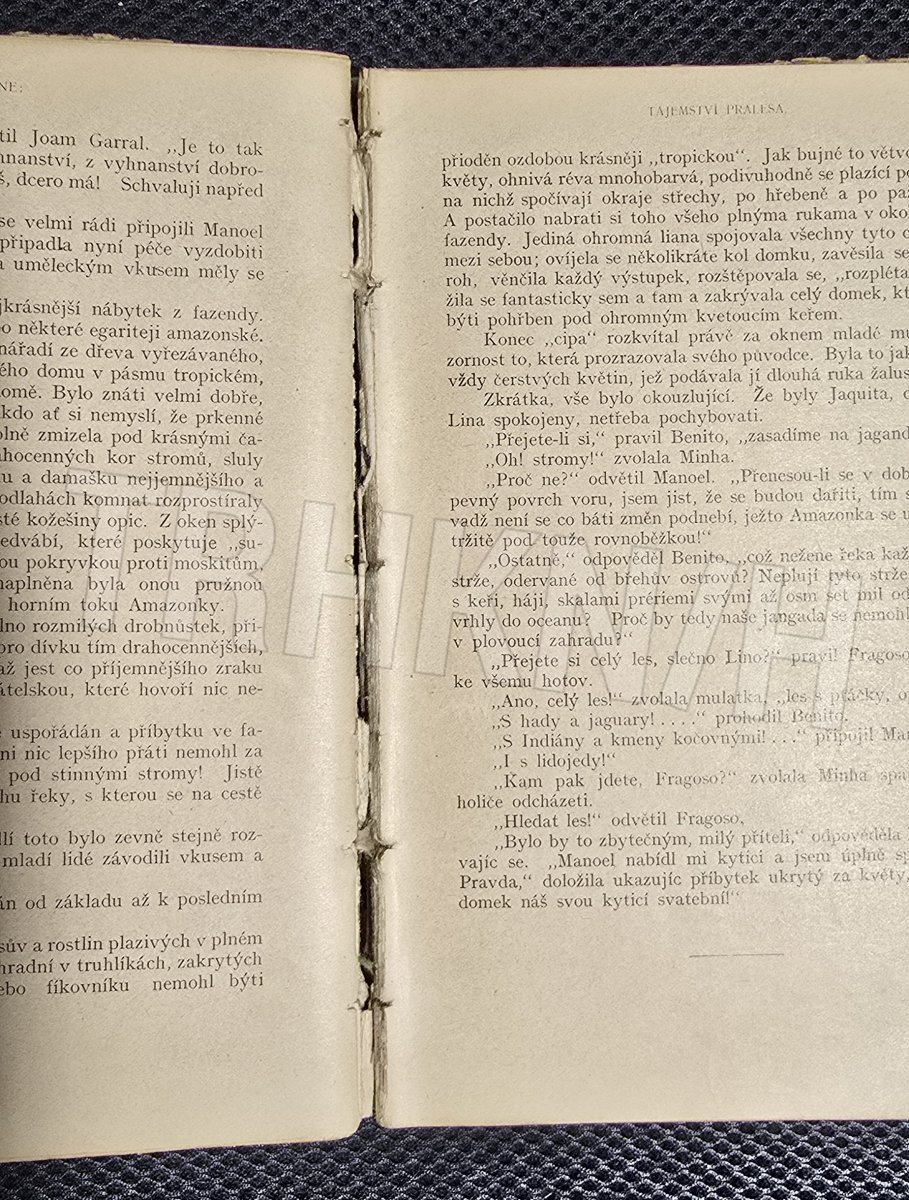 NE:
til Joam Garral. „Je to tak
nnanství, z vyhnanství dobro-
š, dcero má! Schvaluji napřed
se velmi rádi připojili Manoel
připadla nyní péče vyzdobiti
a uměleckým vkusem měly se
jkrásnější nábytek z fazendy.
o některé egariteji amazonské.
nářadí ze dřeva vyřezávaného,
ého domu v pásmu tropickém,
omě. Bylo znáti velmi dobře,
kdo ať si nemyslí, že prkenné
plně zmizela pod krásnými ča-
ahocenných kor stromů, sluly
u a damašku nejjemnějšího a
odlahách komnat rozprostíraly
sté kožešiny opic. Z oken splý-
edvábí, které poskytuje „su-
ou pokryvkou proti moskitům,
naplněna byla onou pružnou
horním toku Amazonky.
lno rozmilých drobnůstek, při-
pro dívku tím drahocennějších,
až jest co příjemnějšího zraku
átelskou, které hovoří nic ne-
e uspořádán a příbytku ve fa-
ni nic lepšího přáti nemohl za
pod stinnými stromy! Jistě
hu řeky, s kterou se na cestě
dlí toto bylo zevně stejně roz-
mladí lidé závodili vkusem a
án od základu až k posledním
sův a rostlin plazivých v plném
hradní v truhlíkách, zakrytých
ebo fíkovníku nemohl býti
TAJEMSTVÍ PRALESA.
přioděn ozdobou krásněji „tropickou“. Jak bujné to větvo
květy, ohnivá réva mnohobarvá, podivuhodně se plazící po
na nichž spočívají okraje střechy, po hřebeně a po pa
A postačilo nabrati si toho všeho plnýma rukama v oko
fazendy. Jediná ohromná liana spojovala všechny tyto
mezi sebou; ovíjela se několikráte kol domku, zavěsila se
roh, věnčila každý výstupek, rozštěpovala se, „rozpléta
žila se fantasticky sem a tam a zakrývala celý domek, kt
býti pohřben pod ohromným kvetoucím keřem.
Konec „cipa“ rozkvítal právě za oknem mladé mu
zornost to, která prozrazovala svého původce. Byla to jak
vždy čerstvých květin, jež podávala jí dlouhá ruka žalus
Zkrátka, vše bylo okouzlující. Že byly Jaquita,
Lina spokojeny, netřeba pochybovati.
„Přejete-li si,“ pravil Benito, „zasadíme na jagand
„Oh! stromy!“ zvolala Minha.
„Proč ne?“ odvětil Manoel. „Přenesou-li se v dob
pevný povrch voru, jsem jist, že se budou dařiti, tím s
vadž není se co báti změn podnebí, ježto Amazonka se u
tržitě pod touže rovnoběžkou!“
„Ostatně,“ odpověděl Benito, „což nežene řeka kaž
strže, odervané od břehův ostrovů? Neplují tyto strže
s keři, háji, skalami prériemi svými až osm set mil od
vrhly do oceanu? Proč by tedy naše jangada se nemohl
v plovoucí zahradu?“
„Přejete si celý les, slečno Lino?“ pravil Fragoso
ke všemu hotov.
„Ano, celý les!“ zvolala mulatka, „les s ptáčky, o
„S hady a jaguary! . . . .“ prohodil Benito.
„S Indiány a kmeny kočovnými! . . .“ připojil Ma
„I s lidojedy!“
„Kam pak jdete, Fragoso?“ zvolala Minha spa
holiče odcházeti.
„Hledat les!“ odvětil Fragoso,
„Bylo by to zbytečným, milý příteli,“ odpověděla
vajíc se. „Manoel nabídl mi kytici a jsem úplně sp
Pravda,“ doložila ukazujíc příbytek ukrytý za květy,
domek náš svou kyticí svatební!“